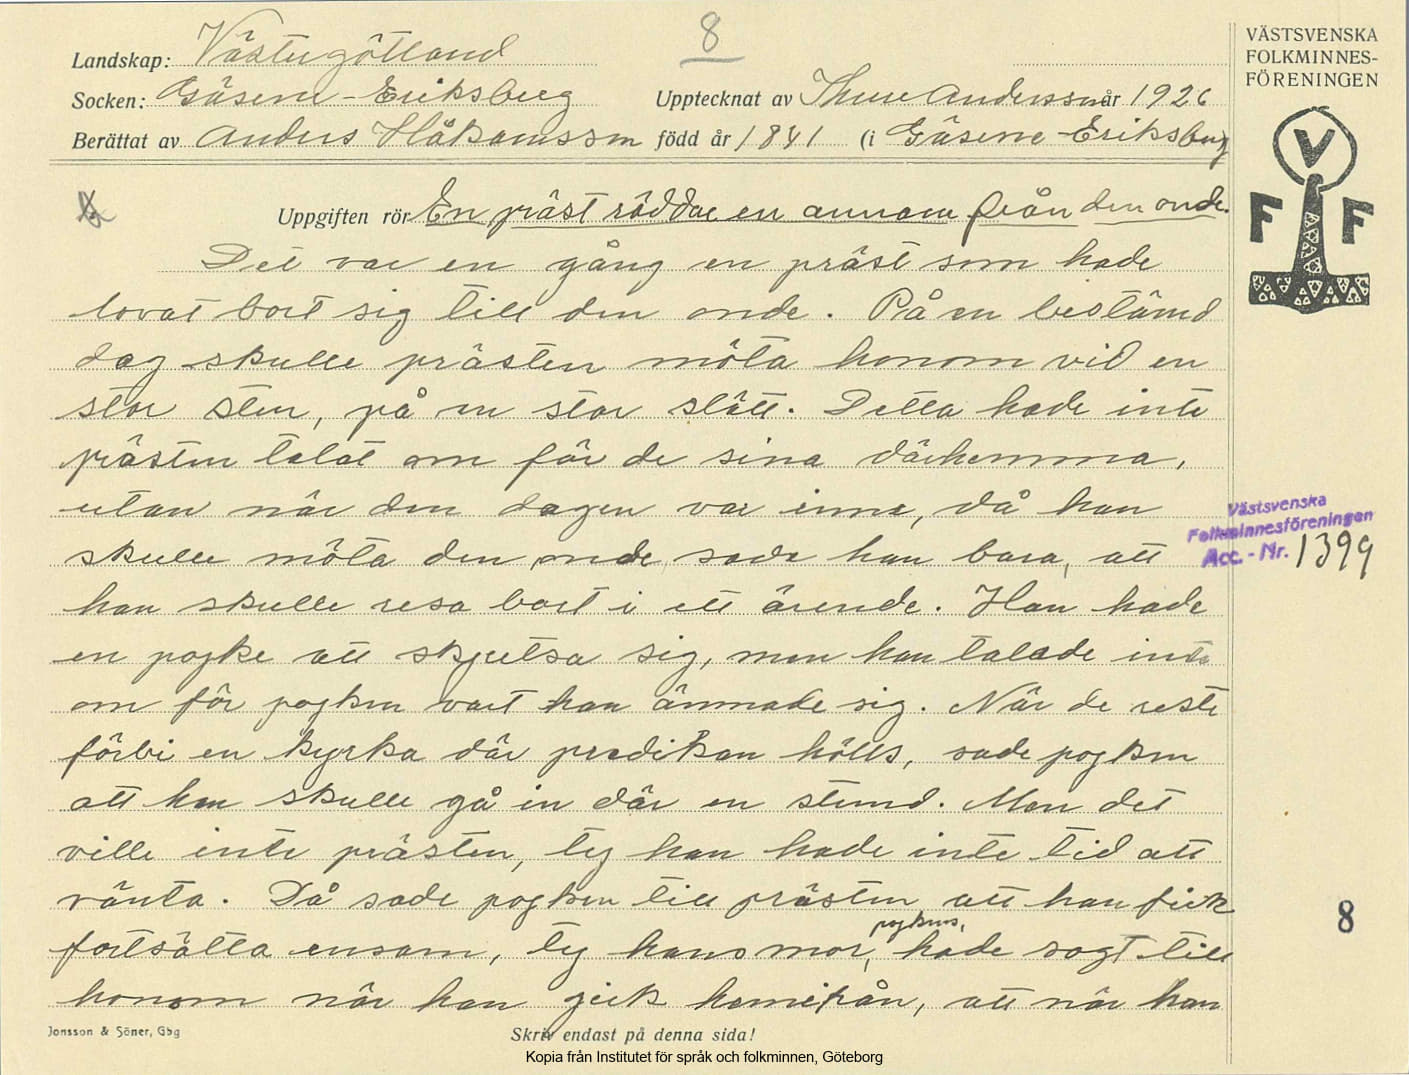 8
Landskap: Västergötland
Socken: Gäsene-Eriksberg
Upptecknat av Thure Andersson år 1926
Berättat av Anders Håkansson född år 1841 (i Gäsene-Eriksberg
Uppgiften rör En präst räddar en annan från den onde.
Det var en gång en präst som hade
lovat bort sig till den onde. På en bestämd
dag skulle prästen möta honom vid en
stor sten, på en stor slätt. Detta hade inte
prästen talat om för de sina därhemma,
utan när den dagen var inne, då han
skulle möta den onde sade han bara, att
han skulle resa bort i ett ärende. Han hade
en pojke att skjutsa sig, men han talade inte
om för pojken vart han ämnade sig. När de reste
förbi en kyrka där predikan hölls, sade pojken
att han skulle gå in där en stund. Men det
ville inte prästen, ty han hade inte tid att
vänta. Då sade pojken till prästen att han fick
fortsätta ensam, ty hans mor, pojkens, hade sagt till
honom när han gick hemifrån, att när han
Jonsson & Söner, Gbg
Skriv endast på denna sida!
Kopia från Institutet för språk och folkminnen, Göteborg
VÄSTSVENSKA
FOLKMINNES-
FÖRENINGEN
V
F F
Västsvenska
Folkminnesföreningen
Acc.-Nr. 1399
8